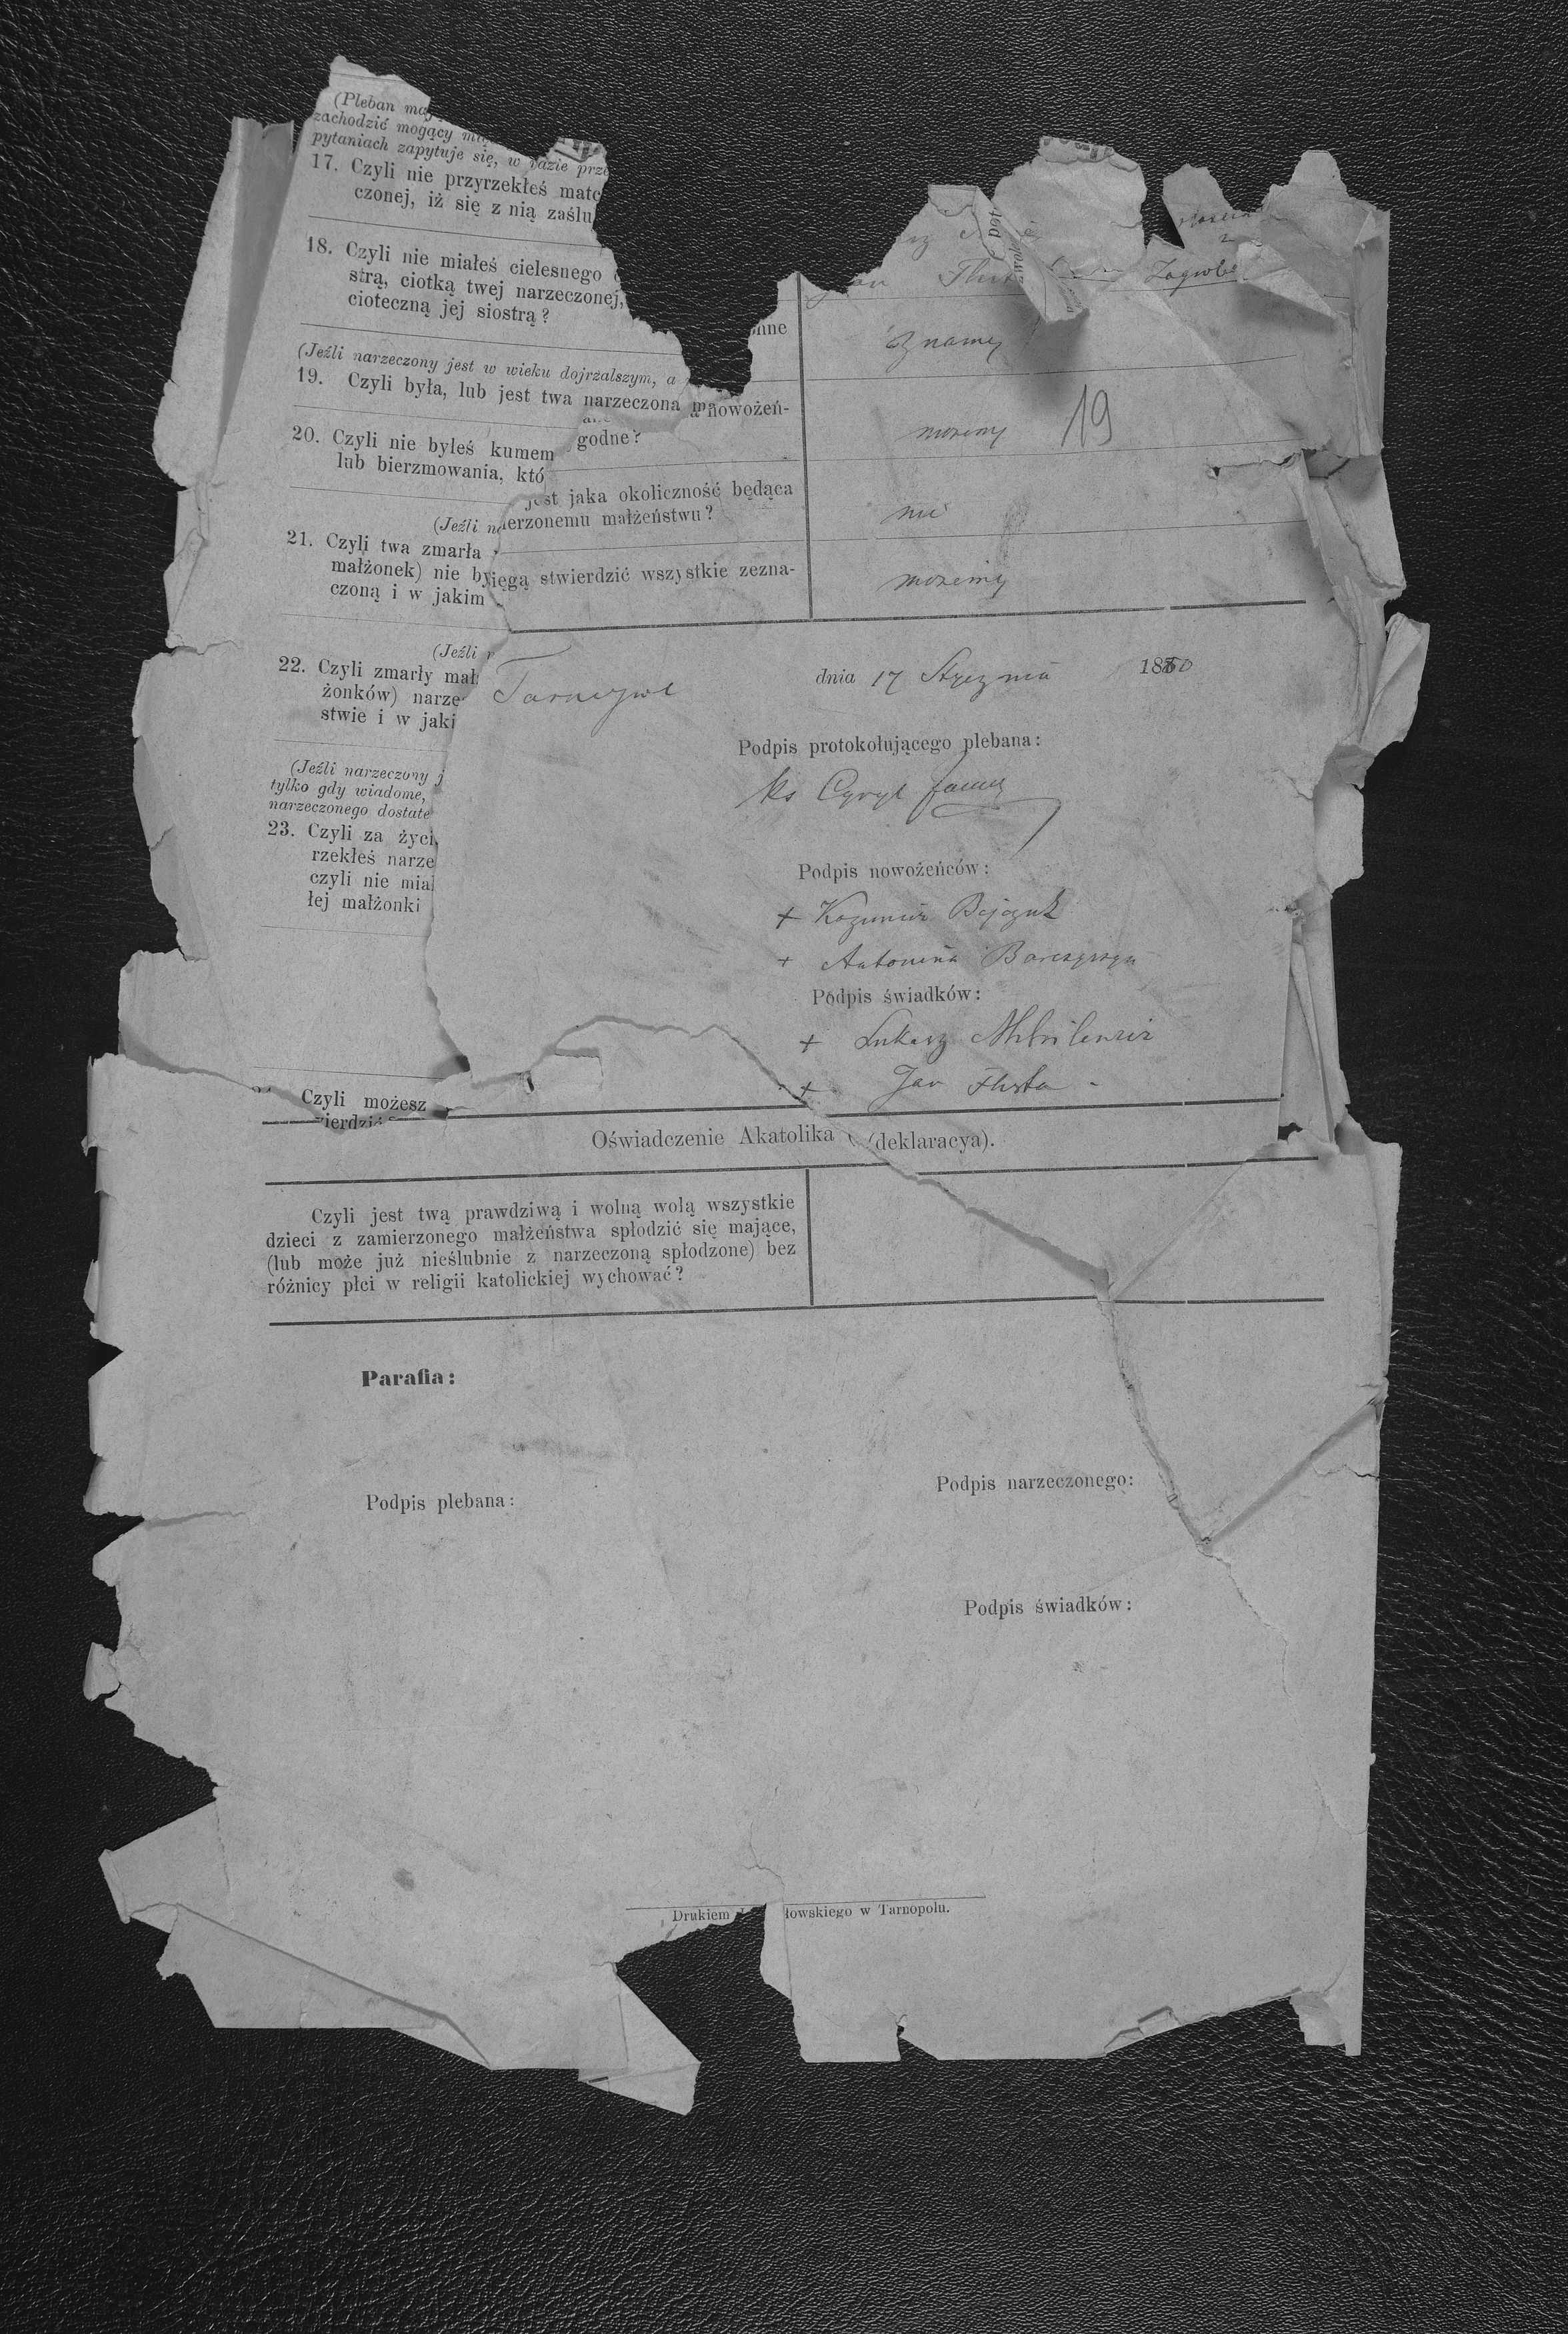 (Pleban ma
zachodzić mogący
pytaniach zapytuje się, w razie prze
17. Czyli nie przyrzekłeś matc
czonej, iż się z nią zaślu
18. Czyli nie miałeś cielesnego
strą, ciotką twej narzeczonej,
cioteczną jej siostrą?
(Jeźli narzeczony jest w wieku dojrzalszym, a
19. Czyli była, lub jest twa narzeczona
20. Czyli nie byłeś kumem
lub bierzmowania, któ
(Jeźli n
21. Czyli twa zmarła
małżonek) nie by
czoną i w jakim
(Jeźli
22. Czyli zmarły mał
żonków) narze
stwie i w jaki
(Jeźli narzeczony j
tylko gdy wiadome,
narzeczonego dostate
23. Czyli za życi
rzekłeś narze
czyli nie miał
łej małżonki
Czyli możesz
ierdzić
Jan
Zagrobe
nne
znamy
nowożeń-
godne?
możemy
19
jest jaka okoliczność będąca
ierzonemu małżeństwu?
nie
ięgą stwierdzić wszystkie zezna-
możemy
dnia 17 Stycznia 1880
Podpis protokołującego plebana:
ks Cyryl
Podpis nowożeńców:
+ Kazimierz Bojczuk
+ Antonina
Podpis świadków:
+ Łukasz
+ Jan Flista
Oświadczenie Akatolika (deklaracya).
Czyli jest twą prawdziwą i wolną wolą wszystkie
dzieci z zamierzonego małżeństwa spłodzić się mające,
(lub może już nieślubnie z narzeczoną spłodzone) bez
różnicy płci w religii katolickiej wychować?
Parafia:
Podpis plebana:
Podpis narzeczonego:
Podpis świadków:
Drukiem
łowskiego w Tarnopolu.